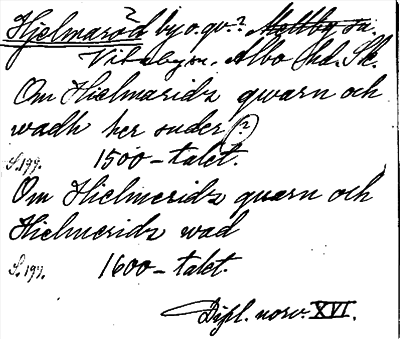 Hjelmaröd by o. qv.? Mellby sn.
Vitaby sn. Albo hd. Sk.
Om Hielmaridz qwarn och
wadh her suder (?)
S. 199. 1500-talet.
Om Hielmeridz quarn och
Hielmeridz wad
S. 197. 1600-talet.
Dipl. norv. XVI.